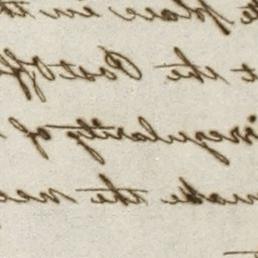 place in the
t the Post Off
irregularity of
make the nec